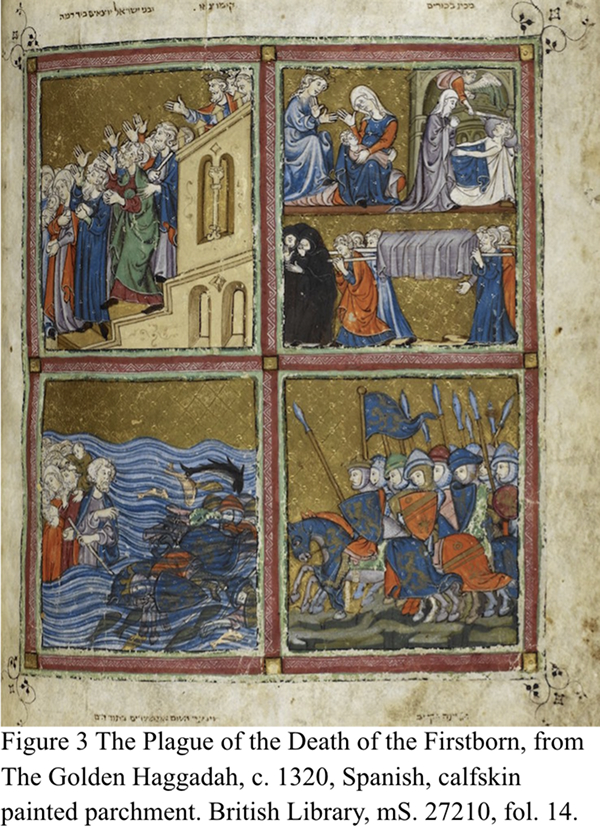 מכת בכורים קומו צאו ובני ישראל יוצאים ביד רמה
Figure 3 The Plague of the Death of the Firstborn, from
The Golden Haggadah, c. 1320, Spanish, calfskin
painted parchment. British Library, mS. 27210, fol. 14.